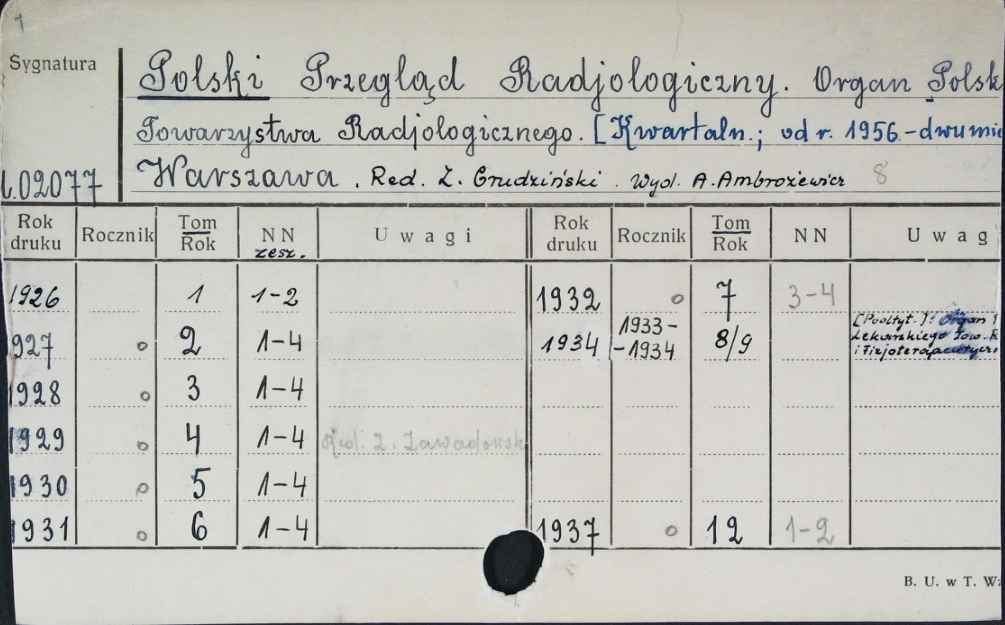 1
Sygnatura
Polski Przegląd Radjologiczny. Organ Polsk
Towarzystwa Radjologicznego. [Kwartaln.; od r. 1956.-dwumie
02077 Warszawa. Red. Z. Grudziński. Wyd. A. Ambrożewicz 8
Rok druku Rocznik Tom Rok NN zesz. Uwagi Rok druku Rocznik Tom Rok NN Uwag
1926 1 1-2 1932 o 7 3-4
927 o 2 1-4 1934 1933--1934 8/9 [Podtyt.]: Organ
Lekarskiego Tow.
i Fizjoterapeutyczn
1928 o 3 1-4
1929 o 4 1-4 Red. Z. Zawadowsk
1930 o 5 1-4
1931 o 6 1-4 1937 o 12 1-2
B. U. w T. W